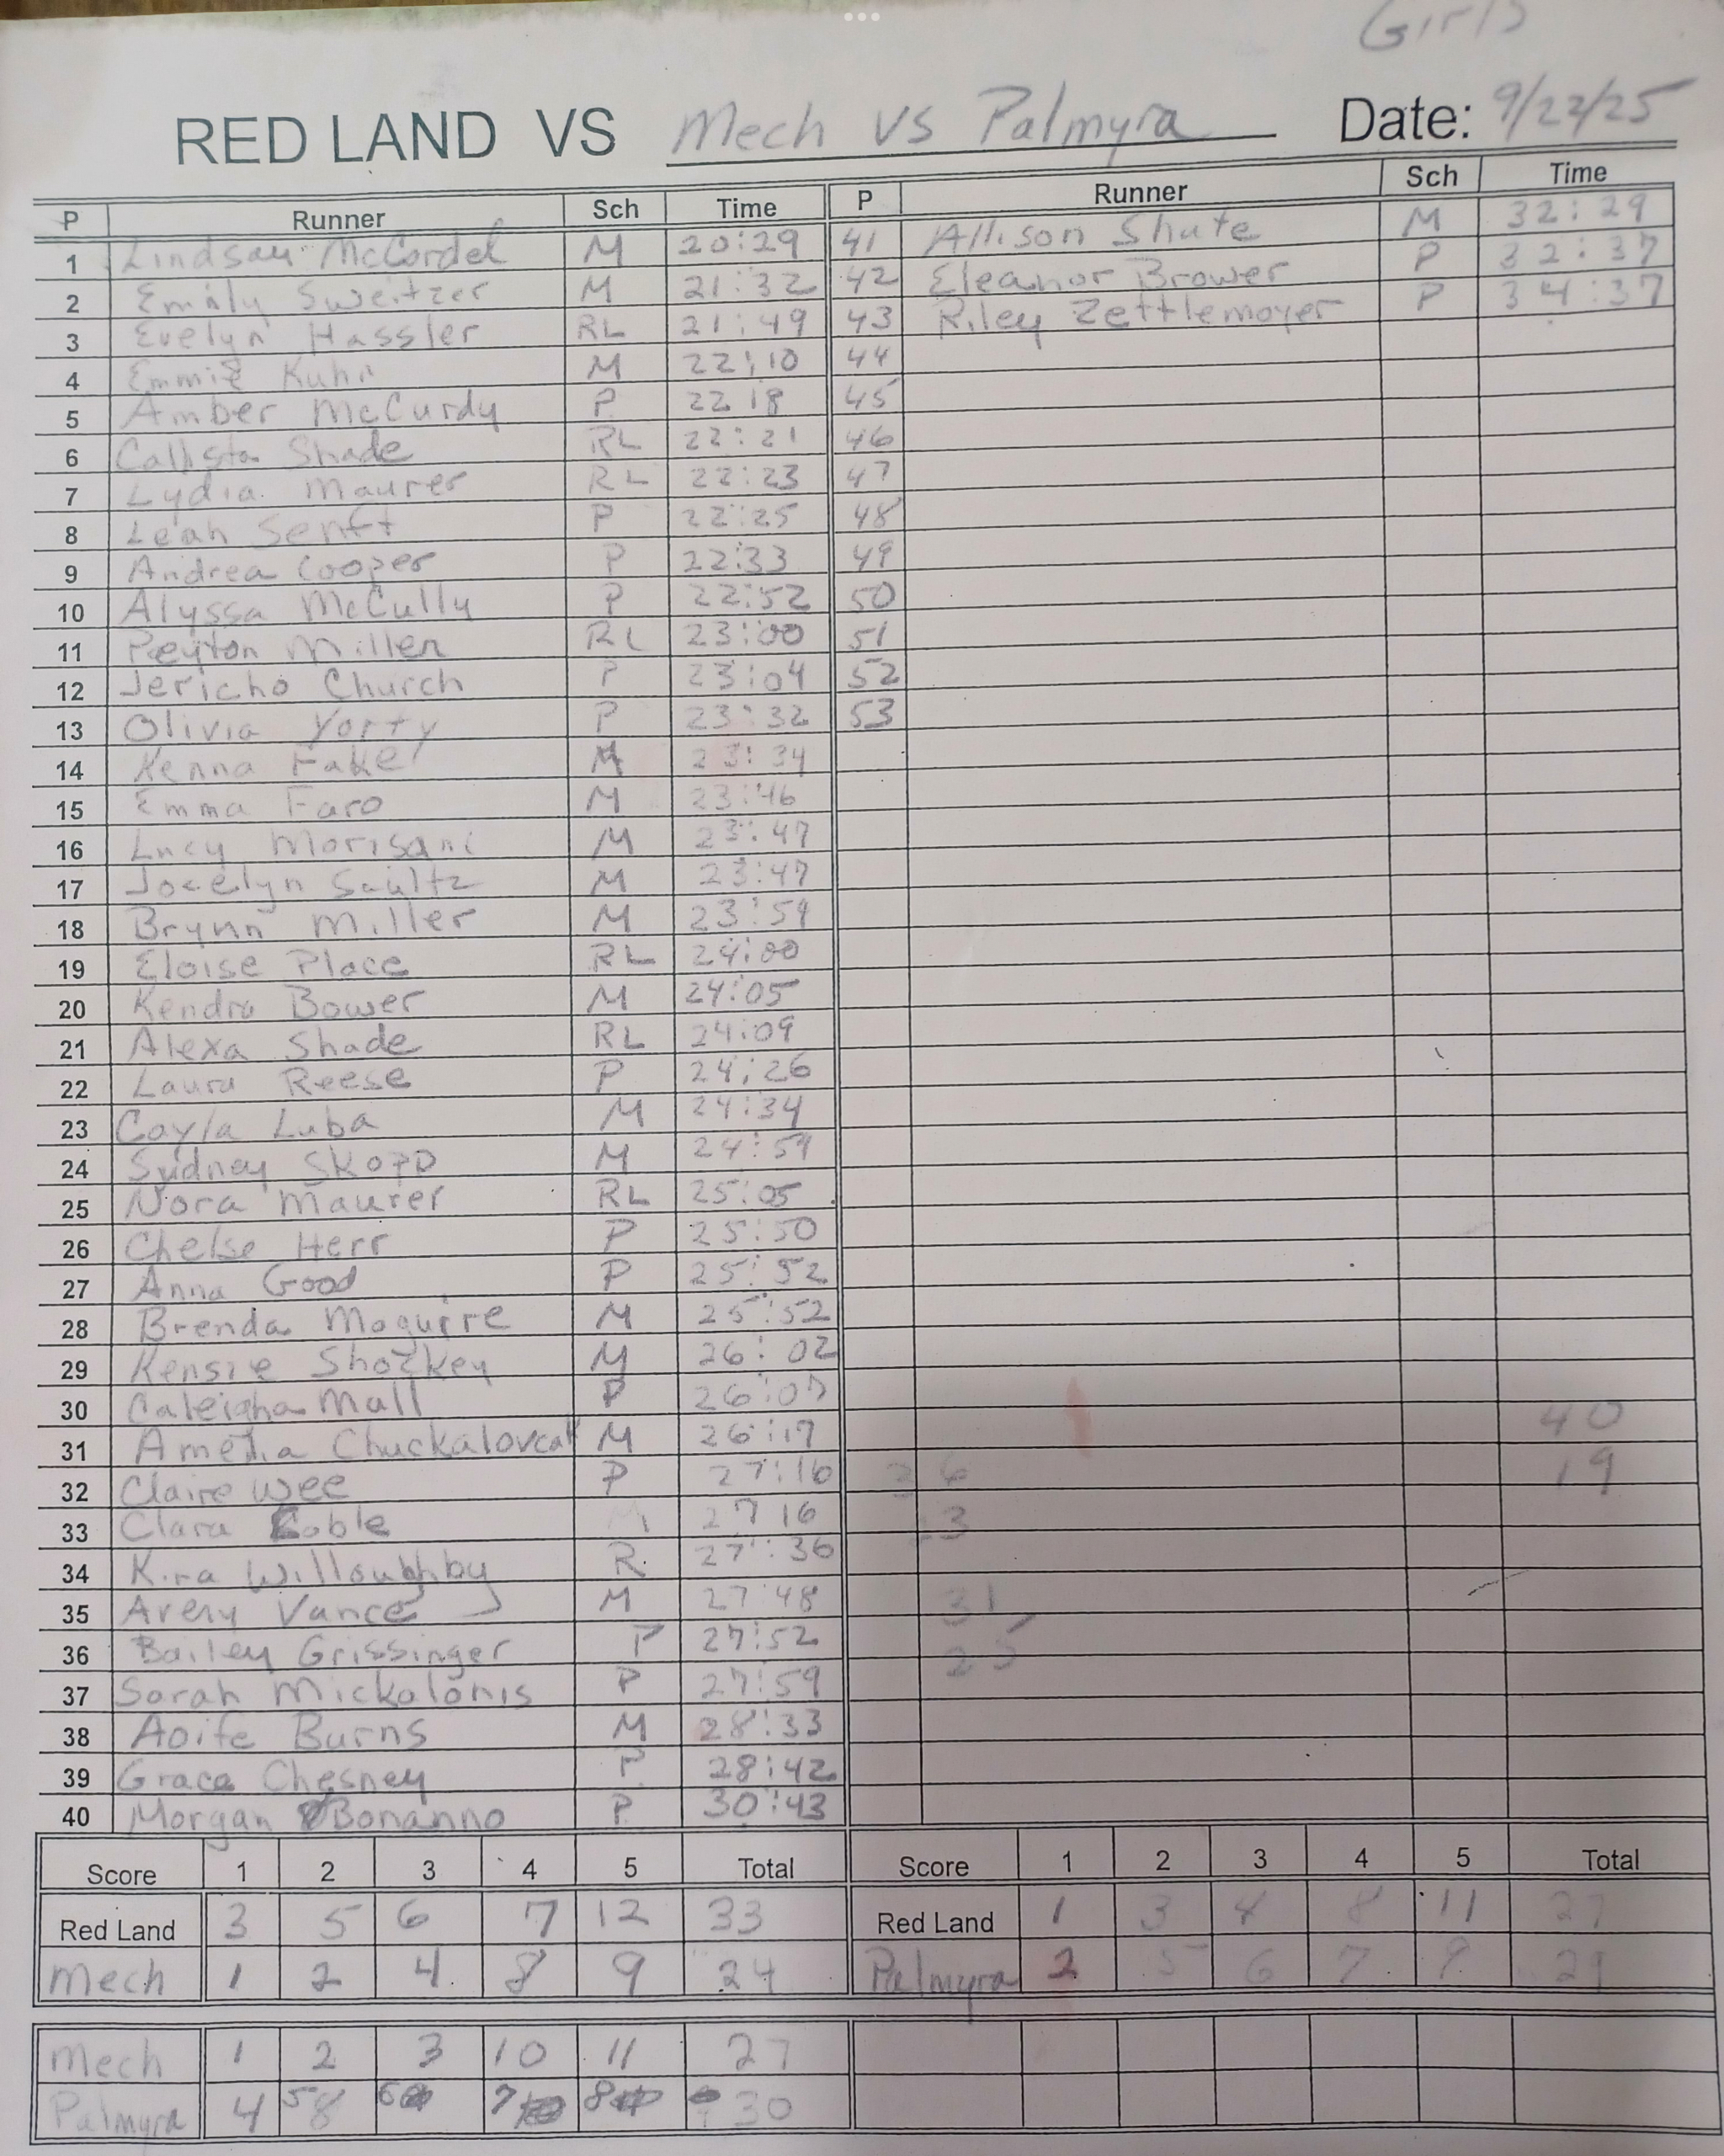 Girls
RED LAND VS Mech vs Palmyra Date: 9/22/25
P Runner Sch Time P Runner Sch Time
1 Lindsay McCordel M 20:29 41 Allison Shute M 32:29
2 Emily Sweitzer M 21:32 42 Eleanor Brower P 32:37
3 Evelyn Hassler RL 21:49 43 Riley Zettlemoyer P 34:37
4 Emmie Kuhn M 22:10 44
5 Amber McCurdy P 22 18 45
6 Callista Shade RL 22:21 46
7 Lydia Maurer RL 22:23 47
8 Leah Senft P 22:25 48
9 Andrea Cooper P 22:33 49
10 Alyssa McCully P 22:52 50
11 Peyton Miller RL 23:00 51
12 Jericho Church P 23:04 52
13 Olivia Yorty P 23:32 53
14 Kenna Fake M 23:34
15 Emma Faro M 23:46
16 Lucy Morisani M 23:47
17 Jocelyn Saultz M 23:47
18 Brynn Miller M 23:59
19 Eloise Place RL 24:00
20 Kendra Bower M 24:05
21 Alexa Shade RL 24:09
22 Laura Reese P 24:26
23 Cayla Luba M 24:34
24 Sydney Skopp M 24:59
25 Nora Maurer RL 25:05
26 Chelse Herr P 25:50
27 Anna Good P 25:52
28 Brenda Moguire M 25:52
29 Kensie Shockey M 26:02
30 Caleigha Mall P 26:07
31 Amelia M 26:17
32 Claire Wee P 27:16
33 Clara Coble M 27 16
34 Kira Willoughby R. 27:36
35 Avery Vance M 27:48
36 Bailey Grissinger P 27:52
37 Sarah Mickalonis P 27:59
38 Aoife Burns M 28:33
39 Grace Chesney P 28:42
40 Morgan Bonanno P 30:43
40
19
26
3
31
25
Score 1 2 3 4 5 Total Score 1 2 3 4 5 Total
Red Land 3 5 6 7 12 33 Red Land 1 3 4 8 11 27
Mech 1 2 4 8 9 24 Palmyra 2 5 6 7 9 29
Mech 1 2 3 10 11 27
Palmyra 4 5 8 6 7 8 30